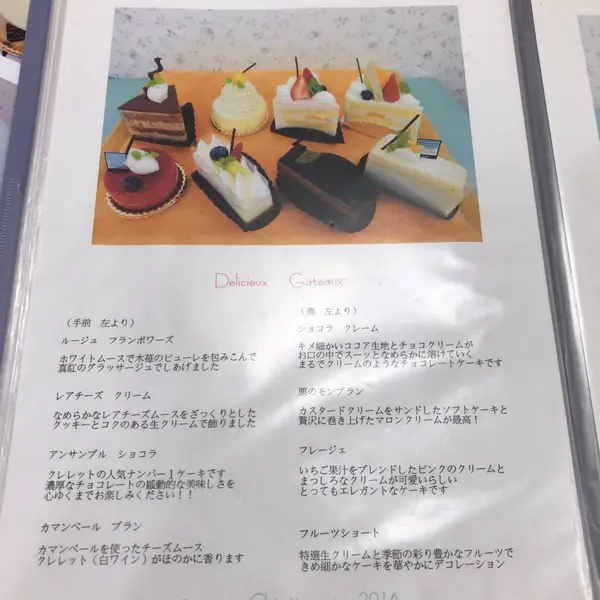 Delicieux Gateaux
（手前 左より）
ルージュ フランボワーズ
ホワイトムースで木苺のピューレを包みこんで
真紅のグラッサージュでしあげました
レアチーズ クリーム
なめらかなレアチーズムースをざっくりとした
クッキーとコクのある生クリームで飾りました
アンサンブル ショコラ
クレレットの人気ナンバー１ケーキです
濃厚なチョコレートの感動的な美味しさを
心ゆくまでお楽しみください！！
カマンベール ブラン
カマンベールを使ったチーズムース
クレレット（白ワイン）がほのかに香ります
（奥 左より）
ショコラ クレーム
キメ細かいココア生地とチョコクリームが
お口の中でスーッとなめらかに溶けていく
まるでクリームのようなチョコレートケーキです
栗のモンブラン
カスタードクリームをサンドしたソフトケーキと
贅沢に巻き上げたマロンクリームが最高！
フレージェ
いちご果汁をブレンドしたピンクのクリームと
まっしろなクリームが可愛いらしい
とってもエレガントなケーキです
フルーツショート
特選生クリームと季節の彩り豊かなフルーツで
きめ細かなケーキを華やかにデコレーション